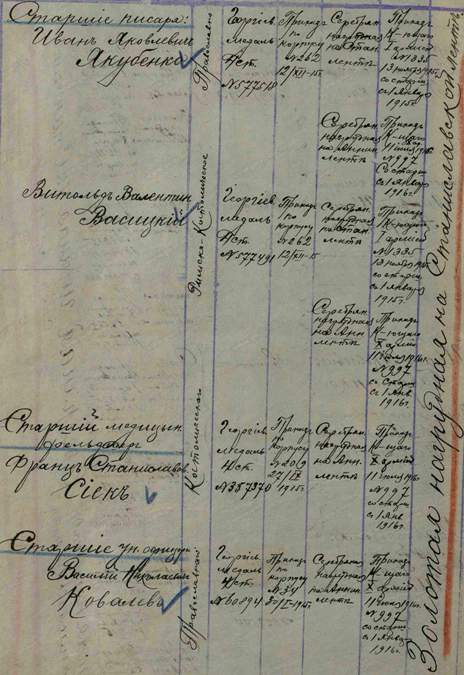 Старшіе писаря:
Иванъ Яковлевич
Якубенко
Православн
Георгіев
Медаль
4 ст.
№577518
Приказ
по
корпусу
№262
12/XII-15
Серебрян
нагрудная
на Стан
лентѣ
Приказ
К-щаго
X арміей
№1335
13 ноября 1915
со старш
съ 1 Января
1915 г.
Серебрян
нагрудная
на Аннин
лентѣ
Приказ
К-щаго
№997
Со старш
съ 1 Января
1916 г.
Витольдъ Валентин
Васицкій
Римско-Католическое
Георгіев
медаль
4 ст
№577491
Приказ
по
корпусу
№262
12/XII-15
Серебрян
нагрудная
на Стан
лентѣ
Приказ
К-щаго
X арміей
№1335
13 ноября 1915
со старш
съ 1 Января
1915 г.
Серебрян
нагрудная
на Анн
лентѣ
Приказ
К-щаго
X арміей
№997
со старш
съ 1 Янв
1916 г.
Старшій медицын
фельдшер
Францъ Станиславов
Сіекъ
Католическаго
Георгіев
Медаль
4 ст
№357370
Приказ
Корпусу
№209
27/IX
1915 г.
Серебрян
нагрудная
на Анн.
лентѣ
Приказ
К-щаго
X арміей
№997
со старш
съ 1 Янв
1916 г.
Старшіе ун. офицеры
Василій Николаевич
Ковалевъ
Православной
Георгіев
Медаль
4 ст
Приказ
по
корпусу
№34
Серебрян
нагрудная
на Аннин
лентѣ
Приказ
К-щаго
X арміей
№997
со старш
съ 1 Января
1916 г.
Золотая нагрудная на Станиславской лентѣ